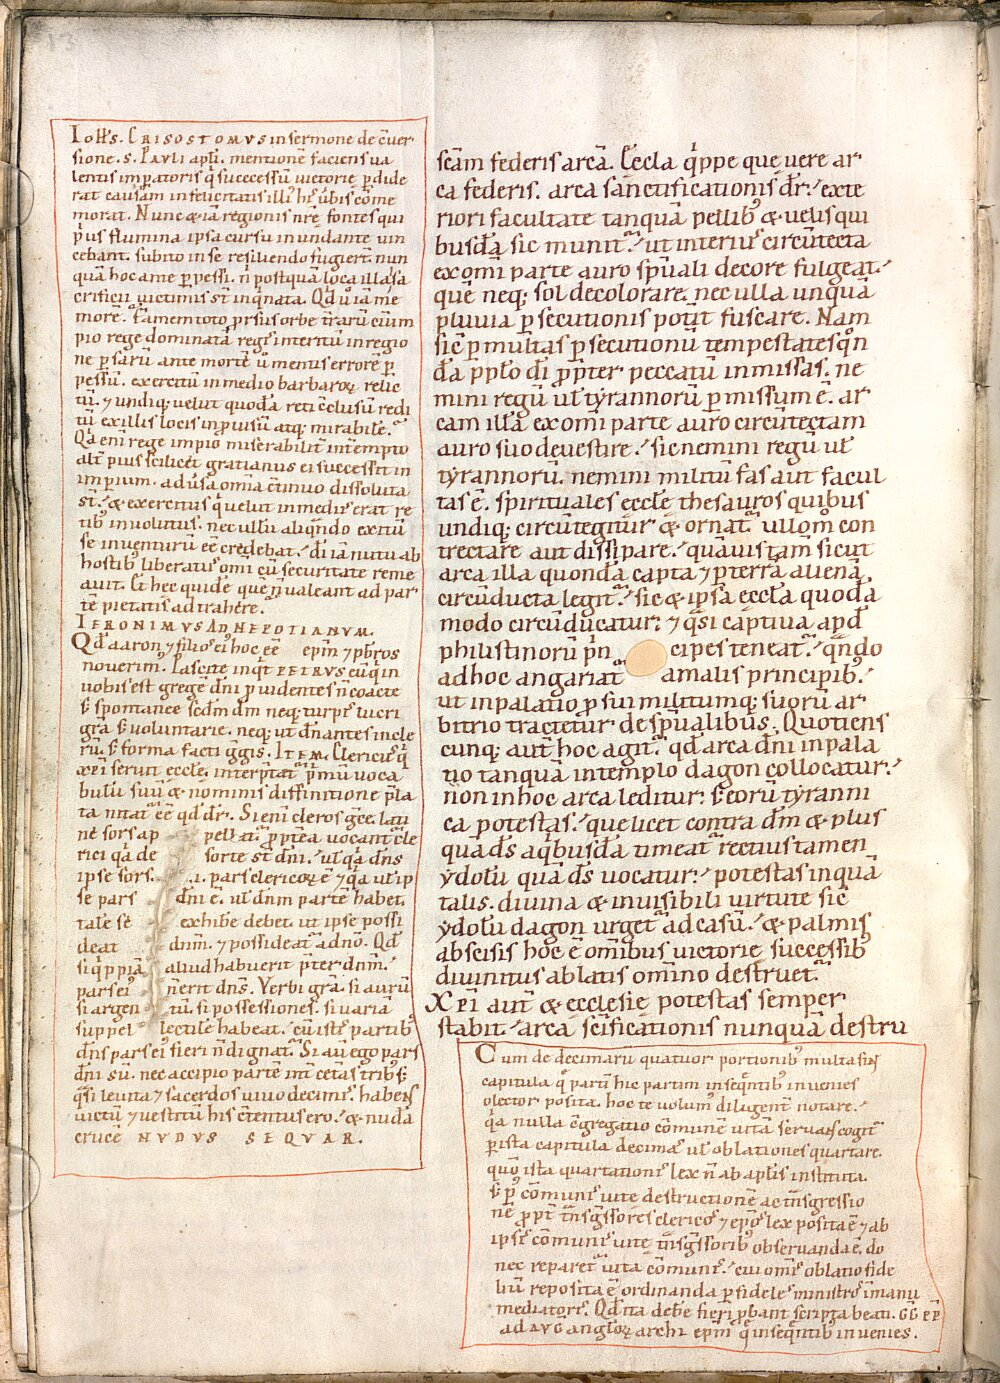 13
Ioħs. CRISOSTOMVS in sermone de c̄uer
sione .s. PAVLI apłi. mentionē faciens ua
lentis imp̄atoris q̓ successū uictorie p̄dide
rat causam infelicitatis illiꝰ hiꝰ ūbis cōme
morat. Nunc & iā regionis nr̄e fontes qui
p̓us flumina ipsa cursu inundante uin
cebant. subito in se resiliendo fugiert̄. nun
quā hoc ante p̄pessi. n̄ postquā loca illa sa
crificii uictimis st̄ inq̓nata. Qd̓ u̓ iā me
more. tamen toto p̱rsus orbe tr̄arū cum
pio rege dominatā regis interitū in regio
ne p̱sarū ante mortē u̓ mentis errorē p̱
pessū. exercitū in medio barbaroꝝ relic
tū. ⁊ undiq; uelut quodā reti c̄clusū redi
tū ex illis locis inp̱uisū atq; mirabile.
Qd̓ eni rege impio miserabilit̓ int̓empto
alt̓ pius scilicet gratianus ei successit in
imp̱ium. ad usa om̄ia c̄tinuo dissoluta
st̄. & exercitus q̓ uelut in mediis erat re
tibꝰ inuolutus. nec ullū aliq̄ndo exitū
se inuenturū eē credebat. di iā nutu ab
hostibꝰ liberatus om̄i cū securitate reme
auit. Et hec quidē que n̄ ualeant ad par
tē pietatis adtrahere.
IERONIMVS AD NEPOTIANVM.
Qd̓ aaron ⁊ filios ei hoc eē ep̄m ⁊ p̄bros
nouerim. Pascite inq̓t PETRVS eū q̓ in
uobis est gregē dn̄i p̱uidentes n̄ coacte
s̓ spontanee scd̄m dm̄ neq; turpis lucri
gr̄a s̓ uoluntarie. neq; ut dn̄antes in cle
rū. s̓ forma facti g̓gis. ITEM. Clericus q̓
xp̄i seruit eccłe. interp̱tat̓ p̓mū uoca
bulū suū & nominis diffinitione p̱la
ta nitat̓ eē qd̓ dr̄. Si eni cleros gr̄ec. lati
ne sors ap pellat̓. p̱pt̓ea uocant̓ cle
rici q̓a de sorte st̄ dn̄i. uł q̓a dn̄s
ipse sors .i. pars clericoꝝ ē ⁊ q̓a uł ip
se pars dn̄i ē. uł dnm partē habet.
tale se exhibe debet. ut ipse possi
deat dnm̄. ⁊ possideat̓ a dn̄o. Qd̓
si q̓ppiā aliud habuerit p̄ter dnm̄.
pars eiꝰ n̄ erit dns̄. Verbi gr̄a. si aurū
si argen tū. si possessiones. si uariā
suppel lectilē habeat. cū istis partibꝰ
dn̄s pars eiꝰ fieri n̄ dignat̓. Si aū ego pars
dn̄i sū. nec accipio partē int̓ cetas tribꝰ s̓
q̓si leuita ⁊ sacerdos uiuo decimis. habens
uictū ⁊ uestitū his c̄tentus ero. & nudā
crucē NVDVS SEQVAR.
scām federis arcā. Eccła q̓ppe que uere ar
ca federis. arca sanctificationis dr̄. exte
riori facultate tanquā pellibꝰ & uelis qui
busdā sic munit̓. ut interiꝰ circūtecta
ex om̄i parte auro spūali decore fulgeat.
quē neq; sol decolorare. nec ulla unquā
pluuia p̱secutionis potit̓ fuscare. Nam
sic p̱ multas p̱secutionū tempestates q̓n
dā pp̄lo di p̱pter peccatū inmissas. ne
mini regū uł tyrannorū p̱missum ē. ar
cam illā ex om̄i parte auro circūtectam
auro suo deuestire. sic nemini regū uł
tyrannorū. nemini militū fas aut facul
tas ē. spirituales eccłe thesauros quibus
undiq; circūtegitur & ornat̓ ullom̓ con
trectare aut dissipare. quāuis tam̄ sicut
arca illa quondā capta ⁊ p̱ terrā alienā
circūducta legit̓. sic & ipsa eccła quodā
modo circūducatur. ⁊ q̓si captiua apd̓
philistinorū p̓n cipes teneat̓. q̄ndo
ad hoc angariat̓ a malis principibꝰ.
ut in palatio p̱ sui militumq; suorū ar
bitrio tractetur de spūalibus. Quotiens
cunq; aut̄ hoc agit̓. qd̓ arca dn̄i in pala
tio tanquā in templo dagon collocatur.
non in hoc arca leditur. s̓ eorū tyranni
ca potestas. que licet contra dm̄ & plus
quā ds̄ a q̓busdā timeat̓ rectius tamen
ydolū quā ds̄ uocatur. potestas inquā
talis. diuina & inuisibili uirtute sic
ydolū dagon urget̓ ad casū. & palmis
abscisis hoc ē om̄ibus uictorie successibꝰ
diuinitus ablatis om̄ino destruet̓.
Xp̄i aut̄ & ecclesie potestas semper
stabit. arca sc̄ificationis nunquā destru
Cum de decimarū quatuor portionibꝰ multa sint
capitula q̓ partī hic partim in seq̄ntibꝰ inuenies
o lector posita. hoc te uolumꝰ diligent̓ notare.
q̓a nulla c̄gregatio cōmunē uitā seruans cogit̓
p̱ ista capitula decimas uł oblationes quartare.
quō ista quartationis lex n̄ ab apłis instituta.
s̓ p̱ cōmunis uite destructionē ac tn̄sgressio
nē p̱pt̓ tn̄sg̓ssores clericos ⁊ ep̄os lex posita ē ⁊ ab
ipsis cōmunis uite tn̄sg̓ssoribꝰ obseruanda ē, do
nec reparet̓ uita cōmunis. cui om̄is oblatio fide
liū reposita ē ordinanda p̱ fideles ministros i manu
mediatoris. Qd̓ ita debere fieri p̱bant scripta beati. GG PP
ad AVG angloꝝ archi ep̄m q̓ in seq̄ntibꝰ inuenies.